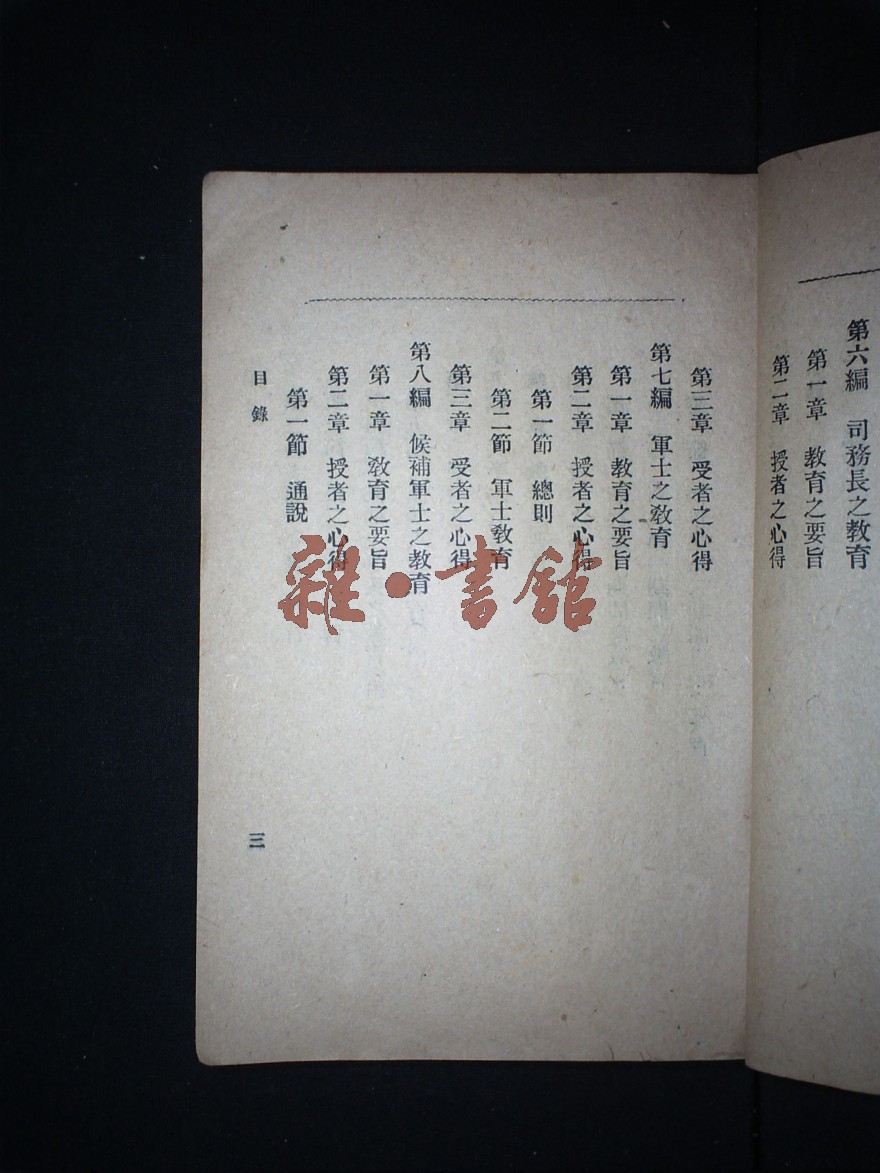 第六編　司務長之教育
第一章　教育之要旨
第二章　授者之心得
第三章　受者之心得
第七編　軍士之教育
第一章　教育之要旨
第二章　授者之心得
第一節　總則
第二節　軍士教育
第三章　受者之心得
第八編　候補軍士之教育
第一章　教育之要旨
第二章　授者之心得
第一節　通說
目錄
三
雜·書館